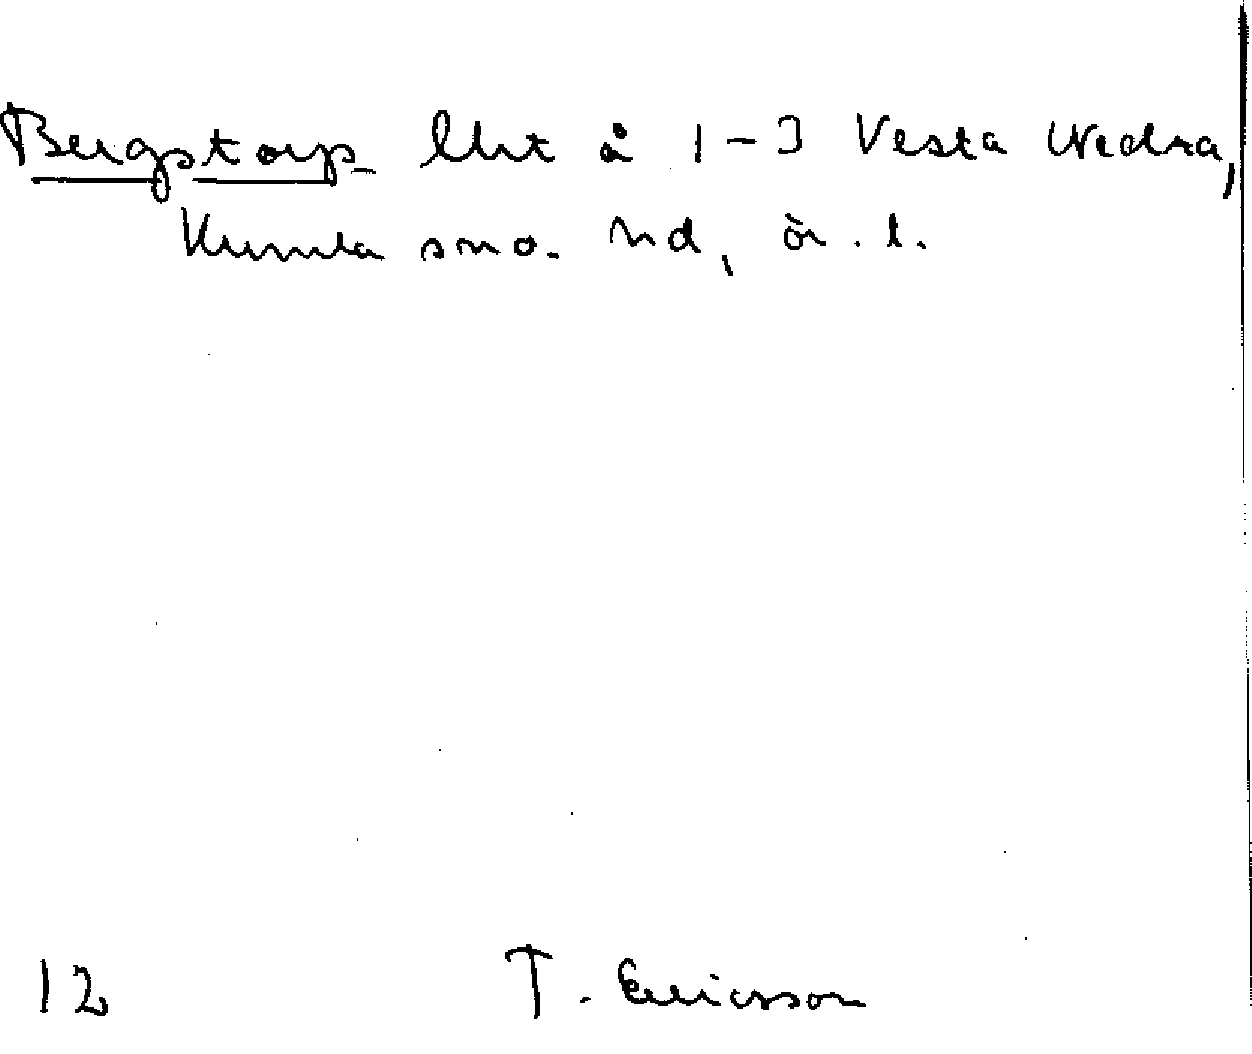 Bergstorp lht å 1-3 Vesta Wedra,
Kumla sno. Nd, ör. l.
12 T. Ericsson